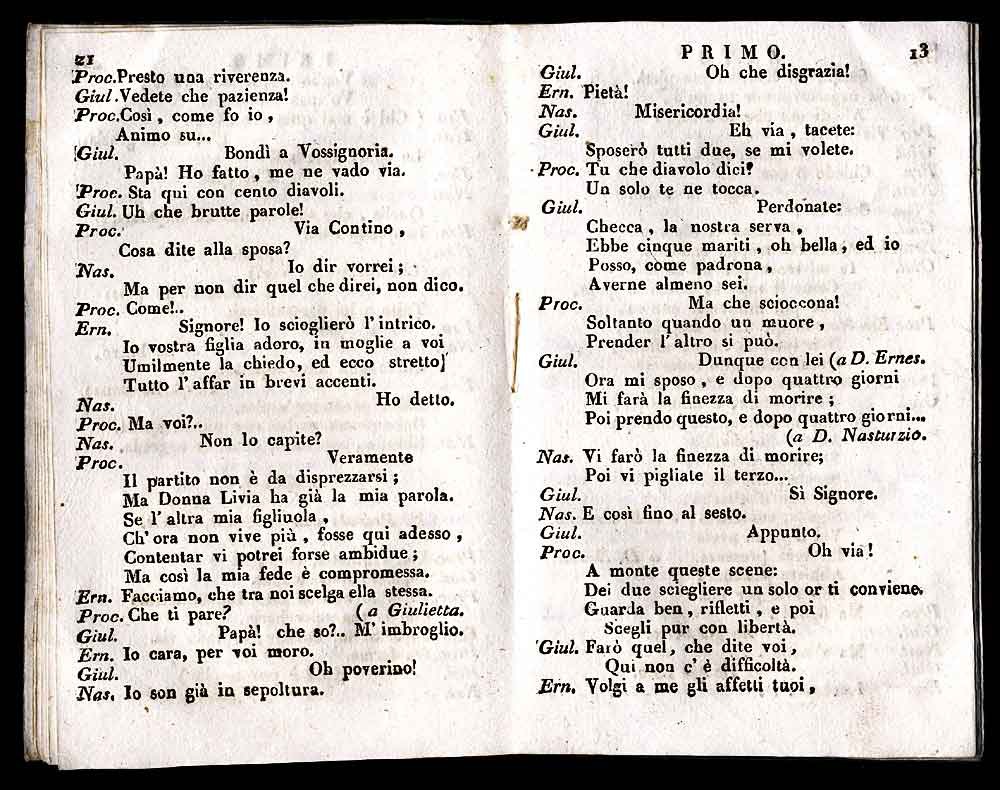 12
Proc. Presto una riverenza.
Giul. Vedete che pazienza!
Proc. Così, come fo io,
Animo su...
Giul. Bondì a Vossignoria.
Papà! Ho fatto, me ne vado via.
Proc. Sta qui con cento diavoli.
Giul. Uh che brutte parole!
Proc. Via Contino,
Cosa dite alla sposa?
Nas. Io dir vorrei;
Ma per non dir quel che direi, non dico.
Proc. Come!..
Ern. Signore! Io scioglierò l'intrico.
Io vostra figlia adoro, in moglie a voi
Umilmente la chiedo, ed ecco stretto
Tutto l'affar in brevi accenti.
Nas. Ho detto.
Proc. Ma voi?..
Nas. Non lo capite?
Proc. Veramente
Il partito non è da disprezzarsi;
Ma Donna Livia ha già la mia parola.
Se l'altra mia figliuola,
Ch'ora non vive più, fosse qui adesso,
Contentar vi potrei forse ambidue;
Ma così la mia fede è compromessa.
Ern. Facciamo, che tra noi scelga ella stessa.
Proc. Che ti pare? (a Giulietta.
Giul. Papà! che so?.. M'imbroglio.
Ern. Io cara, per voi moro.
Giul. Oh poverino!
Nas. Io son già in sepoltura.
PRIMO. 13
Giul. Oh che disgrazia!
Ern. Pietà!
Nas. Misericordia!
Giul. Eh via, tacete:
Sposerò tutti due, se mi volete.
Proc. Tu che diavolo dici?
Un solo te ne tocca.
Giul. Perdonate:
Checca, la nostra serva,
Ebbe cinque mariti, oh bella, ed io
Posso, come padrona,
Averne almeno sei.
Proc. Ma che scioccona!
Soltanto quando un muore,
Prender l'altro si può.
Giul. Dunque con lei (a D. Ernes.
Ora mi sposo, e dopo quattro giorni
Mi farà la finezza di morire;
Poi prendo questo, e dopo quattro giorni...
(a D. Nasturzio.
Nas. Vi farò la finezza di morire;
Poi vi pigliate il terzo...
Giul. Sì Signore.
Nas. E così fino al sesto.
Giul. Appunto.
Proc. Oh via!
A monte queste scene:
Dei due sciegliere un solo or ti conviene.
Guarda ben, rifletti, e poi
Scegli pur con libertà.
Giul. Farò quel, che dite voi,
Qui non c'è difficoltà.
Ern. Volgi a me gli affetti tuoi,